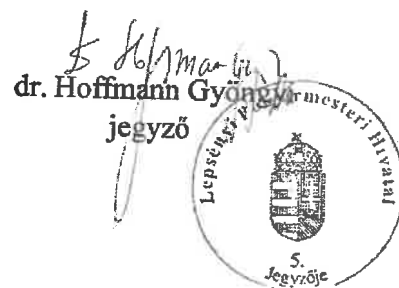 dr. Hoffmann Gyöngyi
jegyző
Lepsényi Polgármesteri Hivatal
5.
Jegyzője